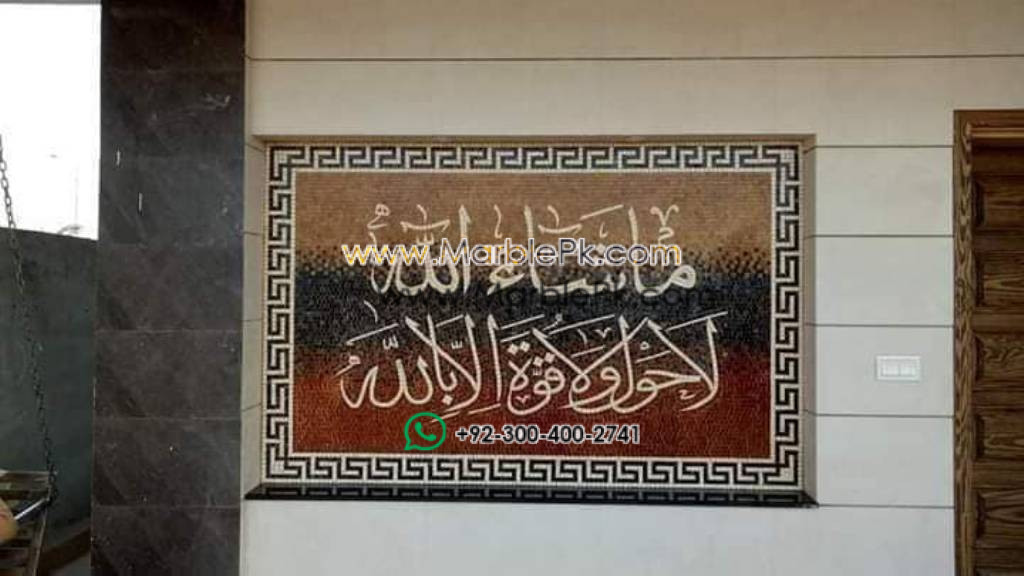 مَاشَاءَ اللّٰهُ
www.MarblePk.com
www.MarblePk.com
لَاحَوْلَ وَلَا قُوَّةَ اِلَّا بِاللّٰهِ
+92-300-400-2741